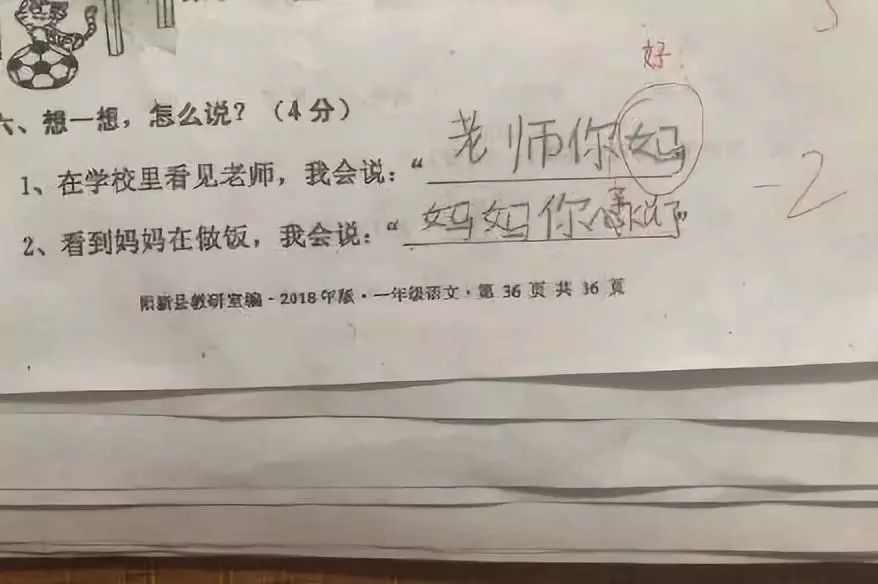 好
六、想一想，怎么说？（4分）
1、在学校里看见老师，我会说：“老师你妈
-2
2、看到妈妈在做饭，我会说：“妈妈你辛苦了”
阳新县教研室编·2018年版·一年级语文·第 36 页 共 36 页